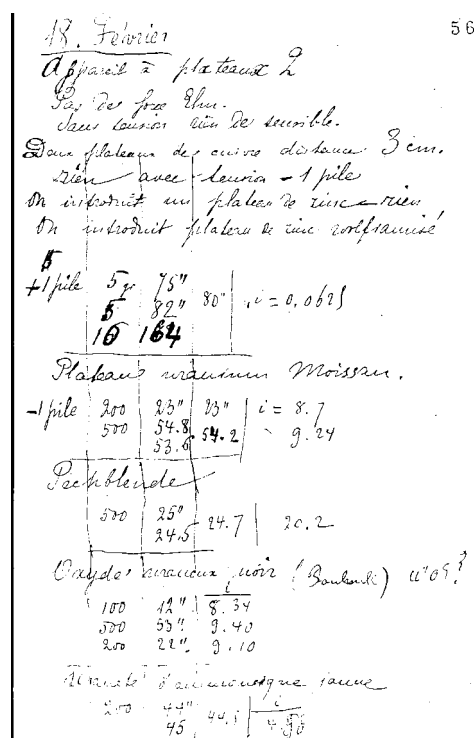 56
18. Février
Appareil à plateaux 2
Pas de force Elm.
Sans tension rien de sensible.
Deux plateaux de cuivre distance 3 cm.
rien avec tension - 1 pile
On introduit un plateau de zinc - rien
On introduit plateau de zinc wolframisé
5
+1 pile 5 gr 75"
5 82" 80" i = 0,0625
10 164
Plateau uranium Moissan.
-1 pile 200 23" 23" i = 8.7
500 54.8 54.2 9.24
53.6
Pechblende
500 25" 24.7 20.2
24.5
Oxyde uraneux noir ( )
i
100 12" 8.34
500 53" 9.40
200 22" 9.10
jaune
i
200 44" 44.5 4.50
45